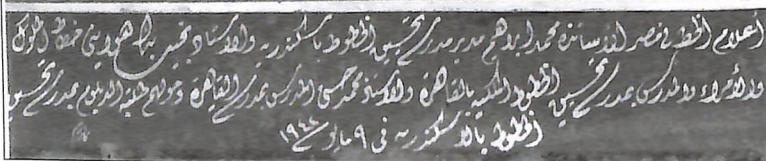 أعلام الخط فى مصر الأساتذة محمد ابراهيم مدير مدرسة تحسين الخطوط باسكندرية والاستاذ نجيب بك هواوينى خطاط الملوك
والأمراء والمدرس بمدرسة تحسين الخطوط الملكية بالقاهرة والاستاذ محمد حسنى المدرس بمدرسة القاهرة وحولهم طلبة الدبلوم بمدرسة تحسين
الخطوط بالاسكندرية فى ٩ مايو ١٩٤٢